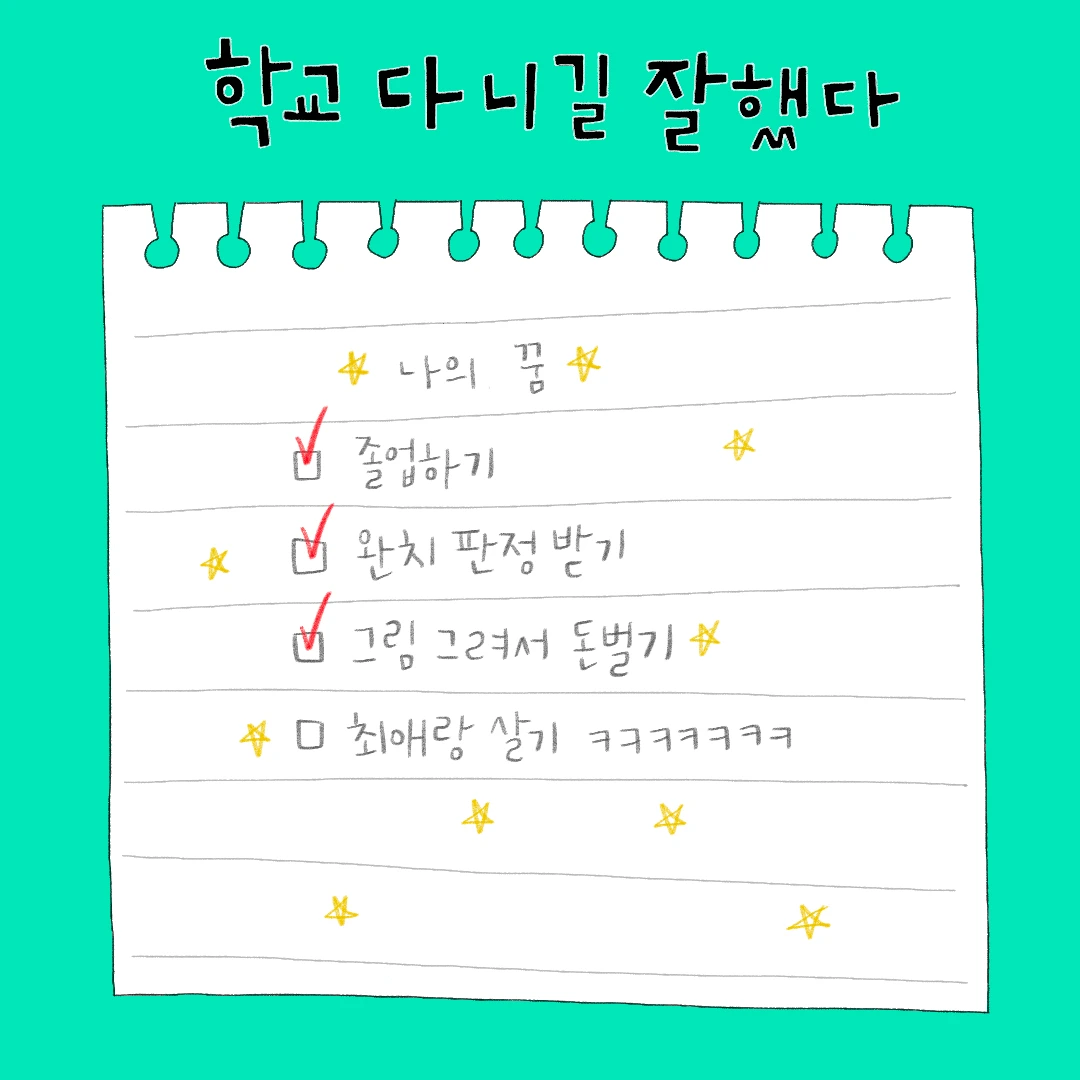 학교 다니길 잘했다
나의 꿈
졸업하기
완치 판정 받기
그림 그려서 돈벌기
최애랑 살기 ㅋㅋㅋㅋㅋㅋㅋ